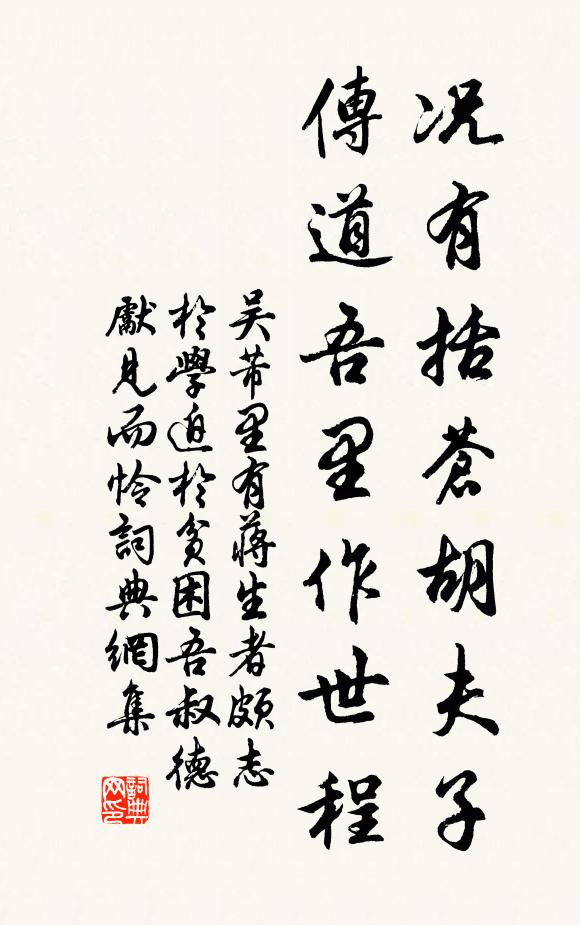 况有括蒼胡夫子
傳道吾里作世程
吴芾里有蔣生者頗志
於學迫於貧困吾叔德
獻見而怜詞典網集
詞典
网印